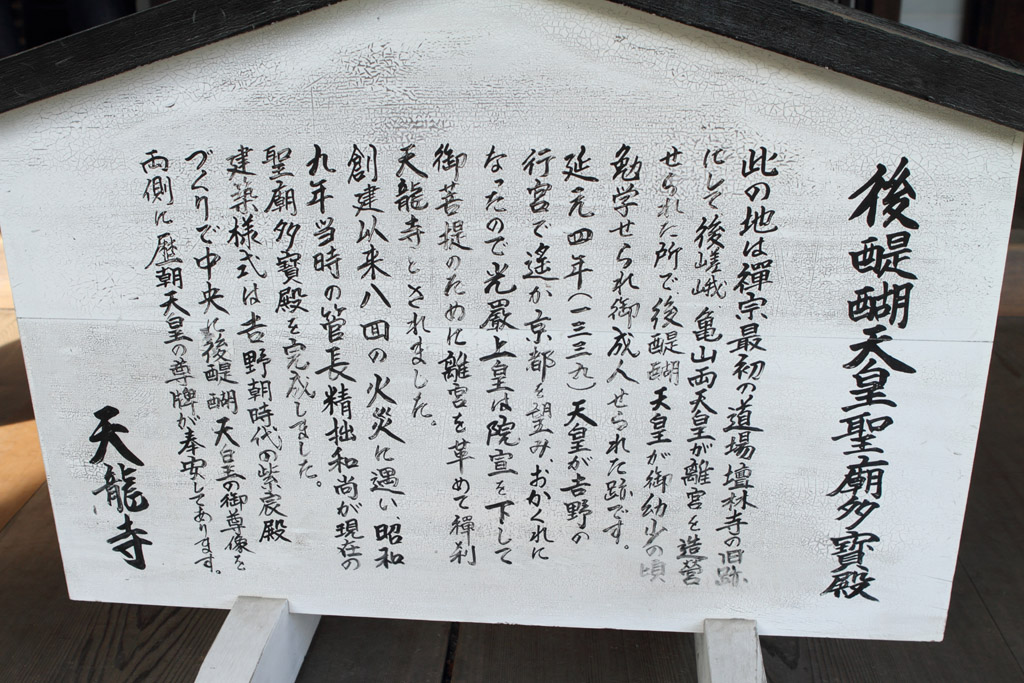 後醍醐天皇聖廟多寶殿
此の地は禪宗最初の道場壇林寺の旧跡
にして後嵯峨 亀山両天皇が離宮を造営
せられた所で後醍醐天皇が御幼少の頃
勉学せられ御成人せられた跡です。
延元四年(一三三九)天皇が吉野の
行宮で遙か京都を望み、おかくれに
なったので光嚴上皇は院宣を下して
御菩提のために離宮を革めて禪刹
天龍寺とされました。
創建以来八回の火災に遇い昭和
九年当時の管長精拙和尚が現在の
聖廟多寶殿を完成しました。
建築様式は吉野朝時代の紫宸殿
づくりで中央に後醍醐天皇の御尊像を
両側に歴朝天皇の尊牌が奉安してあります。
天龍寺